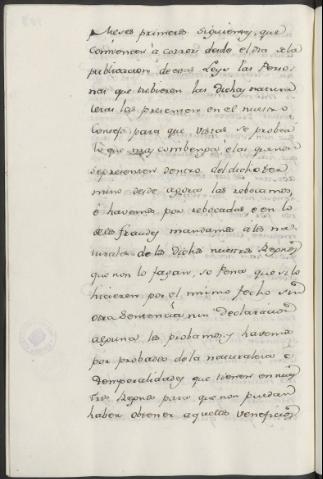 Meses primeros siguientes, que
comiencen a correr desde el dia de la
publicacion de esta Ley las Perso
nas que tubieren las dichas natura
lezas las presenten en el nuestro
Consejo para que vistas se probea
lo que mas combenga e las que no
se presenten dentro del dicho ter
mino desde agora las rebocamos,
é havemos por rebocadas e en lo
de los fraudes mandamos a los na
turales de los dichos nuestros Reynos
que non lo fagan, so Pena que si lo
hicieren por el mismo fecho sin
otra Sentencia nin declaracion
alguna los probamos y havemos
por probados de la naturaleza e
temporalidades que tienen en nues
tros Reynos para que non puedan
haber obtener aquellos veneficios